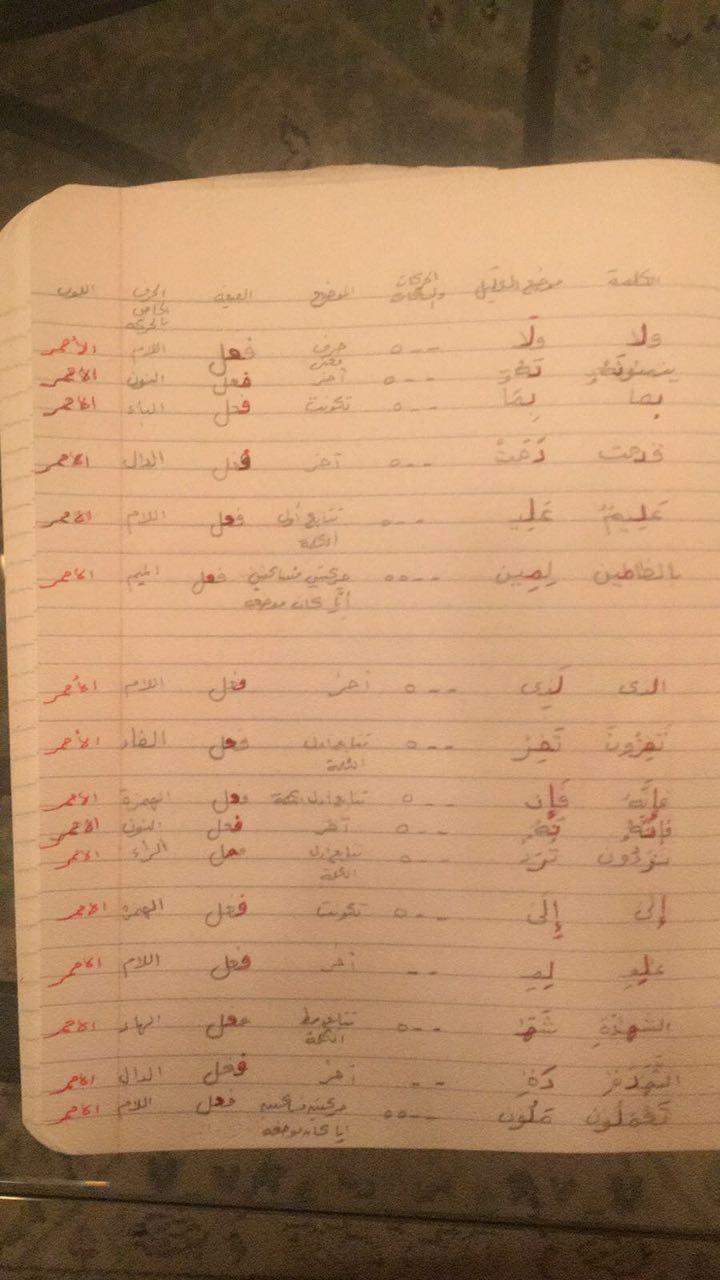 الكلمة موضع التحليل الحركات والسكنات الموضع الصيغة الحرف الخاص بالحركة اللون
ولا وَلَا ٥-- حرف معنى فعل اللام الأحمر
آخر فعل النون الأحمر
بما بِمَا ٥-- تكوين فعل الباء الأحمر
قدمت دَمَتْ ٥-- آخر فعل الدال الأحمر
عَلِيمٌ عَلِيـ ٥-- تتابع أول الكلمة فعل اللام الأحمر
بالظالمين لِمِين ٥٥-- حركتين فساكنين أيًا كان موضعه فعل الميم الأحمر
الذى لَذِى ٥-- آخر فعل اللام الأحمر
تَفِرُّونَ تَفِرْ ٥-- تتابع أول الكلمة فعل الفاء الأحمر
فَإِنَّهُ فَإِنـ ٥-- تتابع أول الكلمة فعل الهمزة الأحمر
آخر فعل النون الأحمر
تُرَدُّون تُرَدْ ٥-- تتابع أول الكلمة فعل الراء الأحمر
إِلَى إِلَى ٥-- تكوين فعل الهمزة الأحمر
-- آخر فعل اللام الأحمر
الشَّهَادَةِ شَهَا ٥-- تتابع وسط الكلمة فعل الهاء الأحمر
-- آخر فعل الدال الأحمر
تَعْمَلُون مَلُون ٥٥-- حركتين فساكنين أيا كان موضعه فعل اللام الأحمر